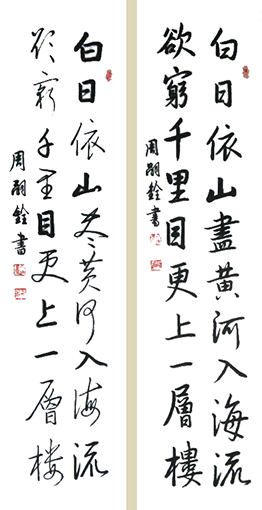 白日依山盡黄河入海流
欲窮千里目更上一層樓
周嗣銓書
白日依山尽黄河入海流
欲窮千里目更上一層楼
周嗣銓書